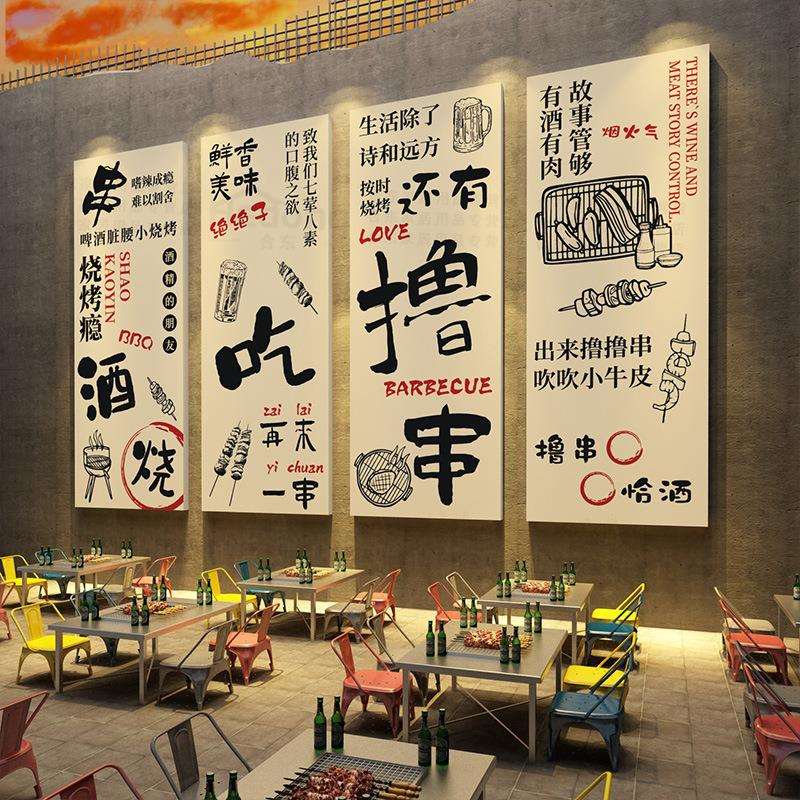 串
嗜辣成瘾
难以割舍
啤酒脏腰小烧烤
烧烤瘾
SHAO
KAOYIN
酒精的朋友
BBQ
酒
烧
鲜香
美味
绝绝子
致我们七荤八素
的口腹之欲
吃
zai lai
再来
yi chuan
一串
生活除了
诗和远方
按时
烧烤
还有
LOVE
撸
BARBECUE
串
故事管够
有酒有肉
烟火气
THERE`S WINE AND
MEAT STORY CONTROL
出来撸撸串
吹吹小牛皮
撸串
恰酒